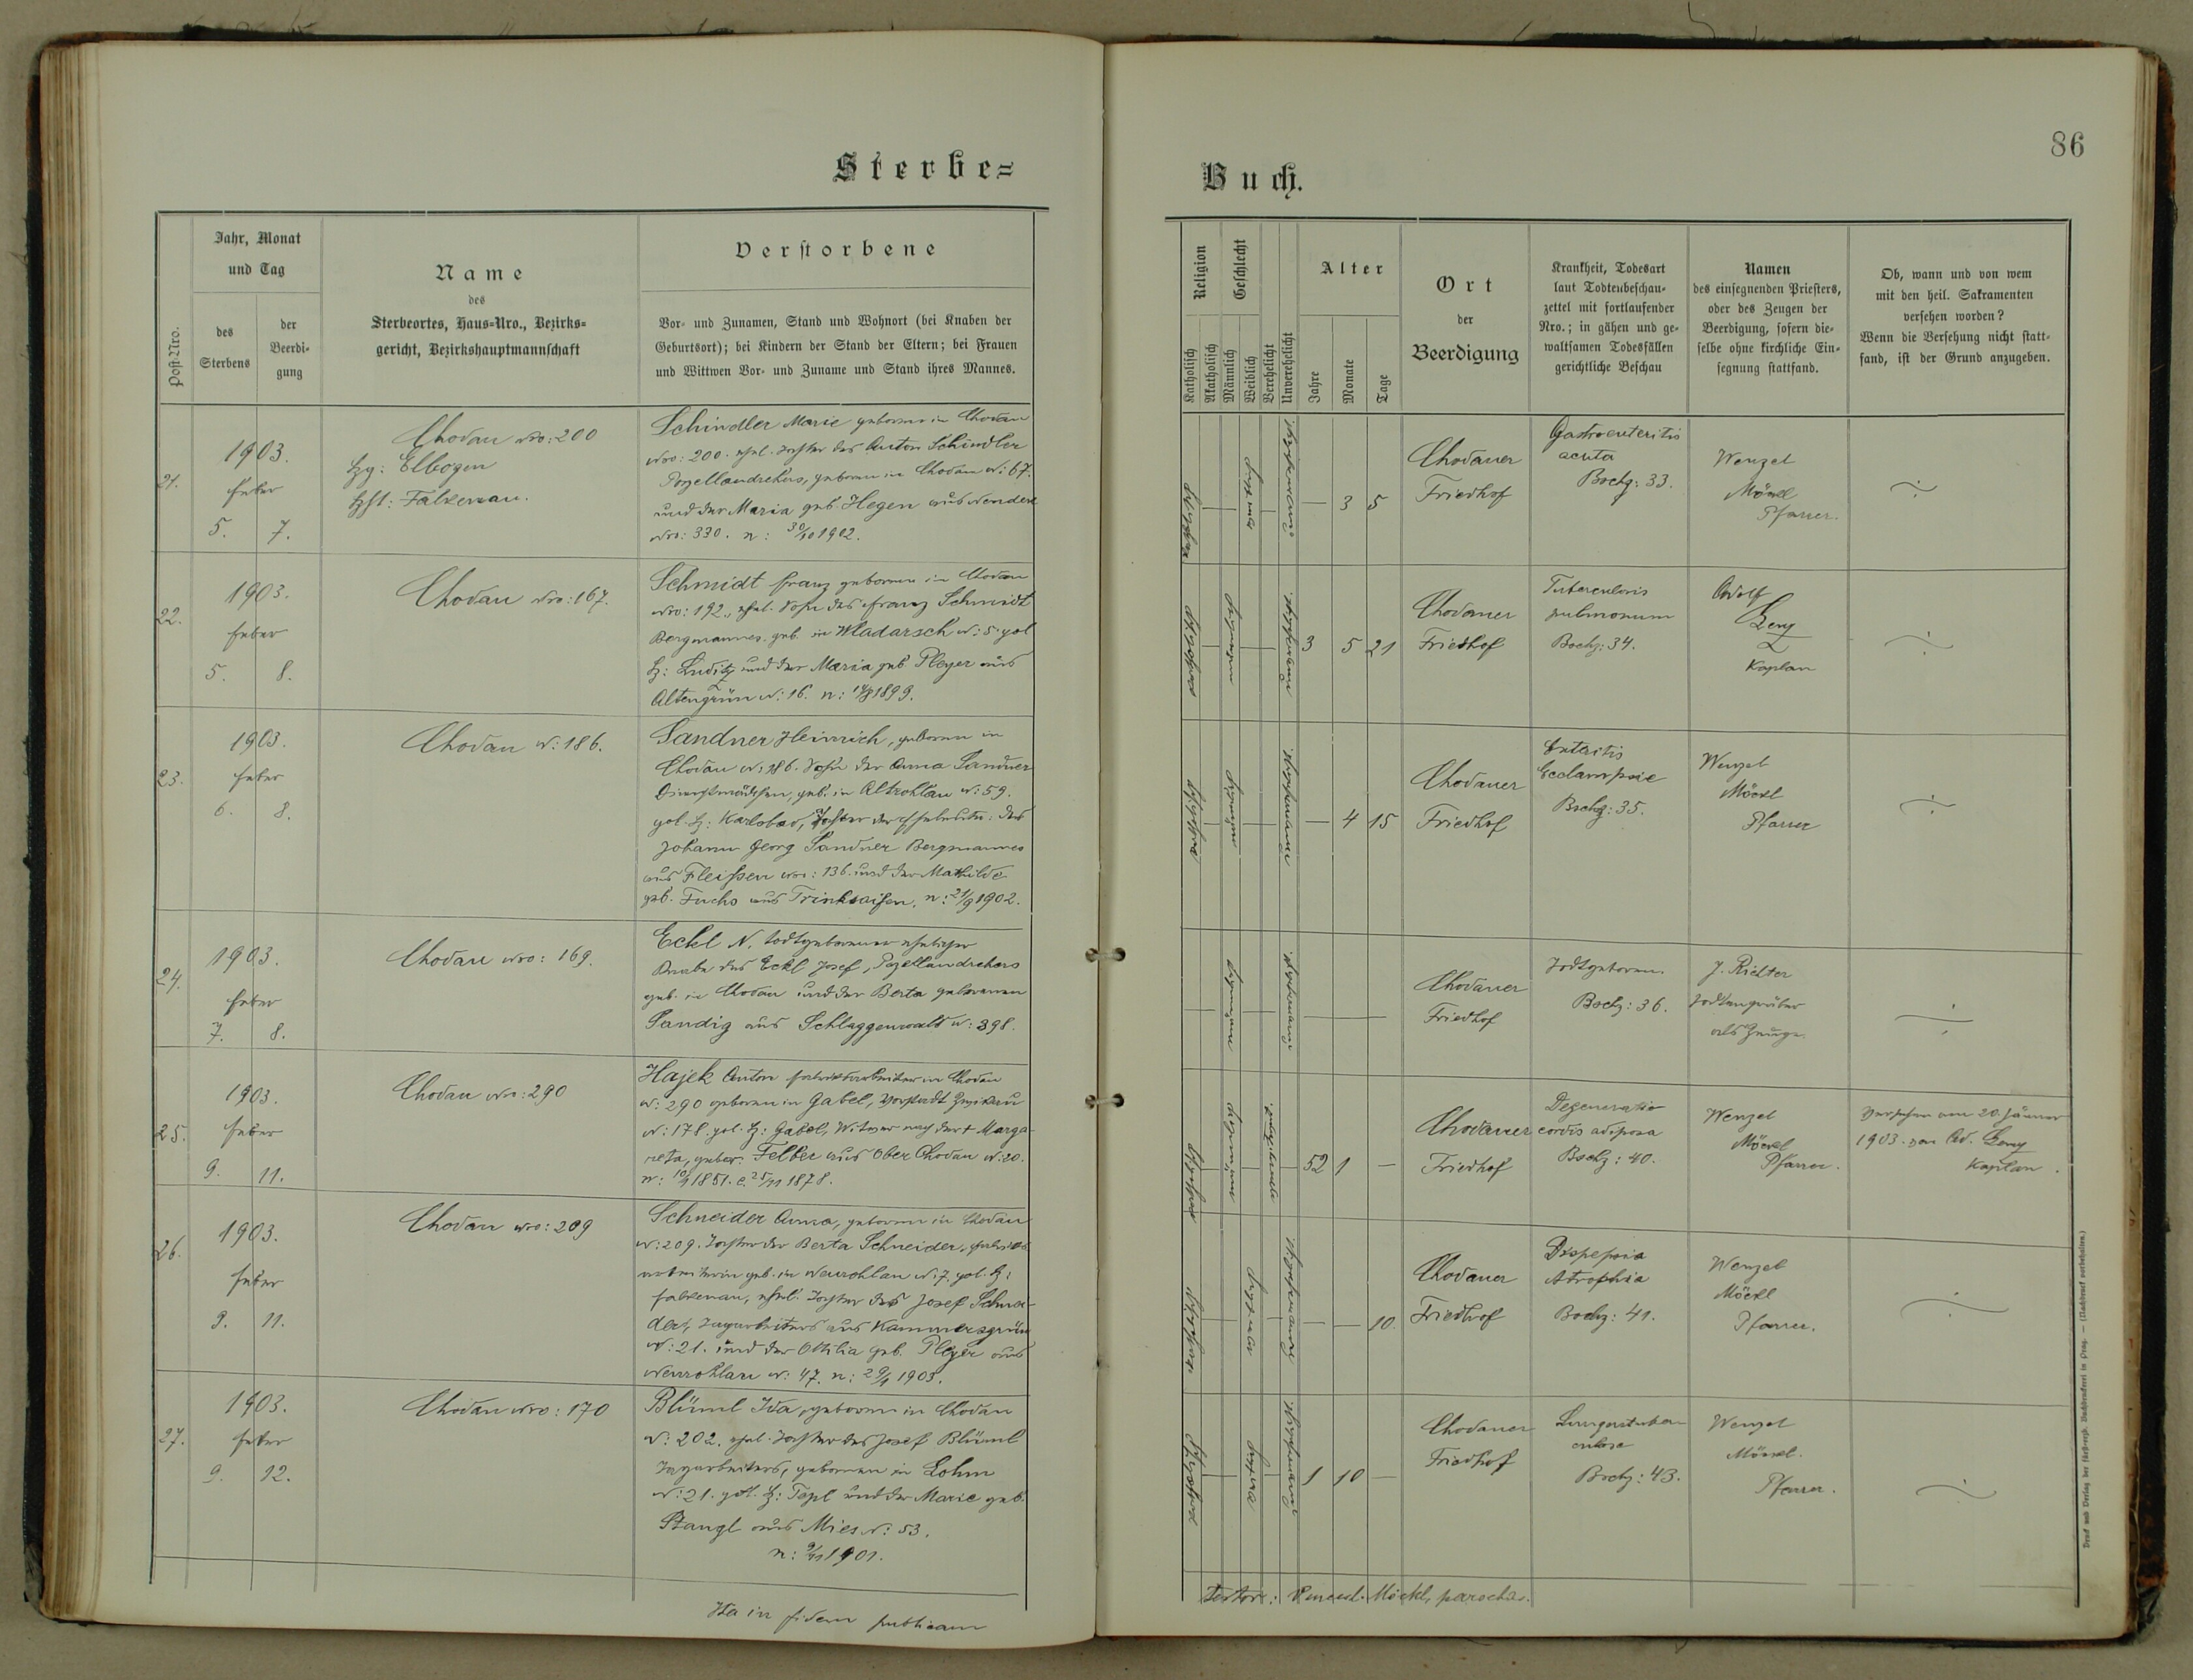 Sterbe=
Jahr, Monat
und Tag
Post-Nro.
des
Sterbens
der
Beerdi-
gung
Name
des
Sterbeortes, Haus-Nro., Bezirks-
gericht, Bezirkshauptmannschaft
Verstorbene
Vor- und Zunamen, Stand und Wohnort (bei Knaben der
Geburtsort); bei Kindern der Stand der Eltern; bei Frauen
und Wittwen Vor- und Zuname und Stand ihres Mannes.
21.
1903.
Feber
5. 7.
Chodau Nro: 200
Bzg: Elbogen
Bzst: Falkenau.
Schindler Marie geboren in Chodau
Nro: 200. ehel. Tochter des Anton Schindler
Porzellandrehers, geboren in Chodau N: 67.
und der Maria geb. Hegen aus Neudek
Nro: 330. n: 30/10 1902.
22.
1903.
Feber
5. 8.
Chodau Nro: 167.
Schmidt Franz geboren in Chodau
Nro: 192., ehel. Sohn des Franz Schmidt
Bergmannes. geb. in Wladarsch N: 5. pol
B: Luditz und der Maria geb. Pleyer aus
Altengrün N: 16. n: 14/8 1899.
23.
1903.
Feber
6. 8.
Chodau N: 186.
Sandner Heinrich, geboren in
Chodau N: 186. Sohn der Anna Sandner
Dienstmädchen, geb. in Altrohlau N: 59.
pol. B: Karlsbad, Tochter der Eheleute: des
Johann Georg Sandner Bergmannes
aus Fleißen Nro: 136. und der Mathilde
geb. Fuchs aus Trinksaifen, n: 21/9 1902.
24.
1903.
Feber
7. 8.
Chodau Nro: 169.
Eckl N. todtgeborener ehelicher
Knabe des Eckl Josef, Pozellandrehers
geb. in Chodau und der Berta geborenen
Sandig aus Schlaggenwald N: 398.
25.
1903.
Feber
9. 11.
Chodau Nro: 290
Hajek Anton Fabriksarbeiter in Chodau
N: 290 geboren in Gabel, Vorstadt Zwikau
N: 178. pol. B: Gabel, Witwer nach der + Marga-
reta, gebor. Felber aus Ober Chodau N: 20.
n: 10/1 1851. c. 25/11 1878.
26.
1903.
Feber
9. 11.
Chodau Nro: 209
Schneider Anna, geboren in Chodau
N: 209. Tochter der Berta Schneider, Fabriks
arbeiterin geb. in Neurohlau N: 7. pol. B:
Falkenau, ehel. Tochter des Josef Schnei-
der, Tagarbeiters aus Kammersgrün
N: 21. und der Othilia geb. Pleyer aus
Neurohlau N: 47. n: 29/1 1903.
27.
1903.
Feber
9. 12.
Chodau Nro: 170
Blüml Ida, geboren in Chodau
N: 202. ehel. Tochter des Josef Blüml
Tagarbeiters, geboren in Lohm
N: 21. pol. B: Tepl und der Marie geb.
Stangl aus Mies N: 53.
n: 9/11 1901.
Ita in fidem publicam
86
Buch.
Religion
Katholisch
Akatholisch
Geschlecht
Männlich
Weiblich
Verehelicht
Unverehelicht
Alter
Jahre
Monate
Tage
Ort
der
Beerdigung
Krankheit, Todesart
laut Todtenbeschau-
zettel mit fortlaufender
Nro.; in gähen und ge-
waltsamen Todesfällen
gerichtliche Beschau
Namen
des einsegnenden Priesters,
oder des Zeugen der
Beerdigung, sofern die-
selbe ohne kirchliche Ein-
segnung stattfand.
Ob, wann und von wem
mit den heil. Sakramenten
versehen worden?
Wenn die Versehung nicht statt-
fand, ist der Grund anzugeben.
— 3 5
Chodauer
Friedhof
Gastroenteritis
acuta
Bschz: 33.
Wenzel
Möckl
Pfarrer.
3 5 21
Chodauer
Friedhof
Tuberculosis
pulmonum
Bschz: 34.
Adolf
Kaplan
— 4 15
Chodauer
Friedhof
Enteritis
Eclampsie
Bschz: 35.
Wenzel
Möckl
Pfarrer
Chodauer
Friedhof
Todtgeboren.
Bschz: 36.
J. Richter
Todtengräber
als Zeuge.
52 1 —
Chodauer
Friedhof
Degeneratio
cordis adiposa
Bschz: 40.
Wenzel
Möckl
Pfarrer.
Versehen am 20. Jänner
1903. von Ad.
Kaplan.
— — 10.
Chodauer
Friedhof
Dispepsia
Atrophia
Bschz: 41.
Wenzel
Möckl
Pfarrer.
1 10 —
Chodauer
Friedhof
Lungentuber
culose
Bschz: 43.
Wenzel
Möckl.
Pfarrer.
Testor: Venceсl. Möckl, parochus.
Druck und Verlag der fürsterzb. Buchdruckerei in Prag. — (Nachdruck vorbehalten.)